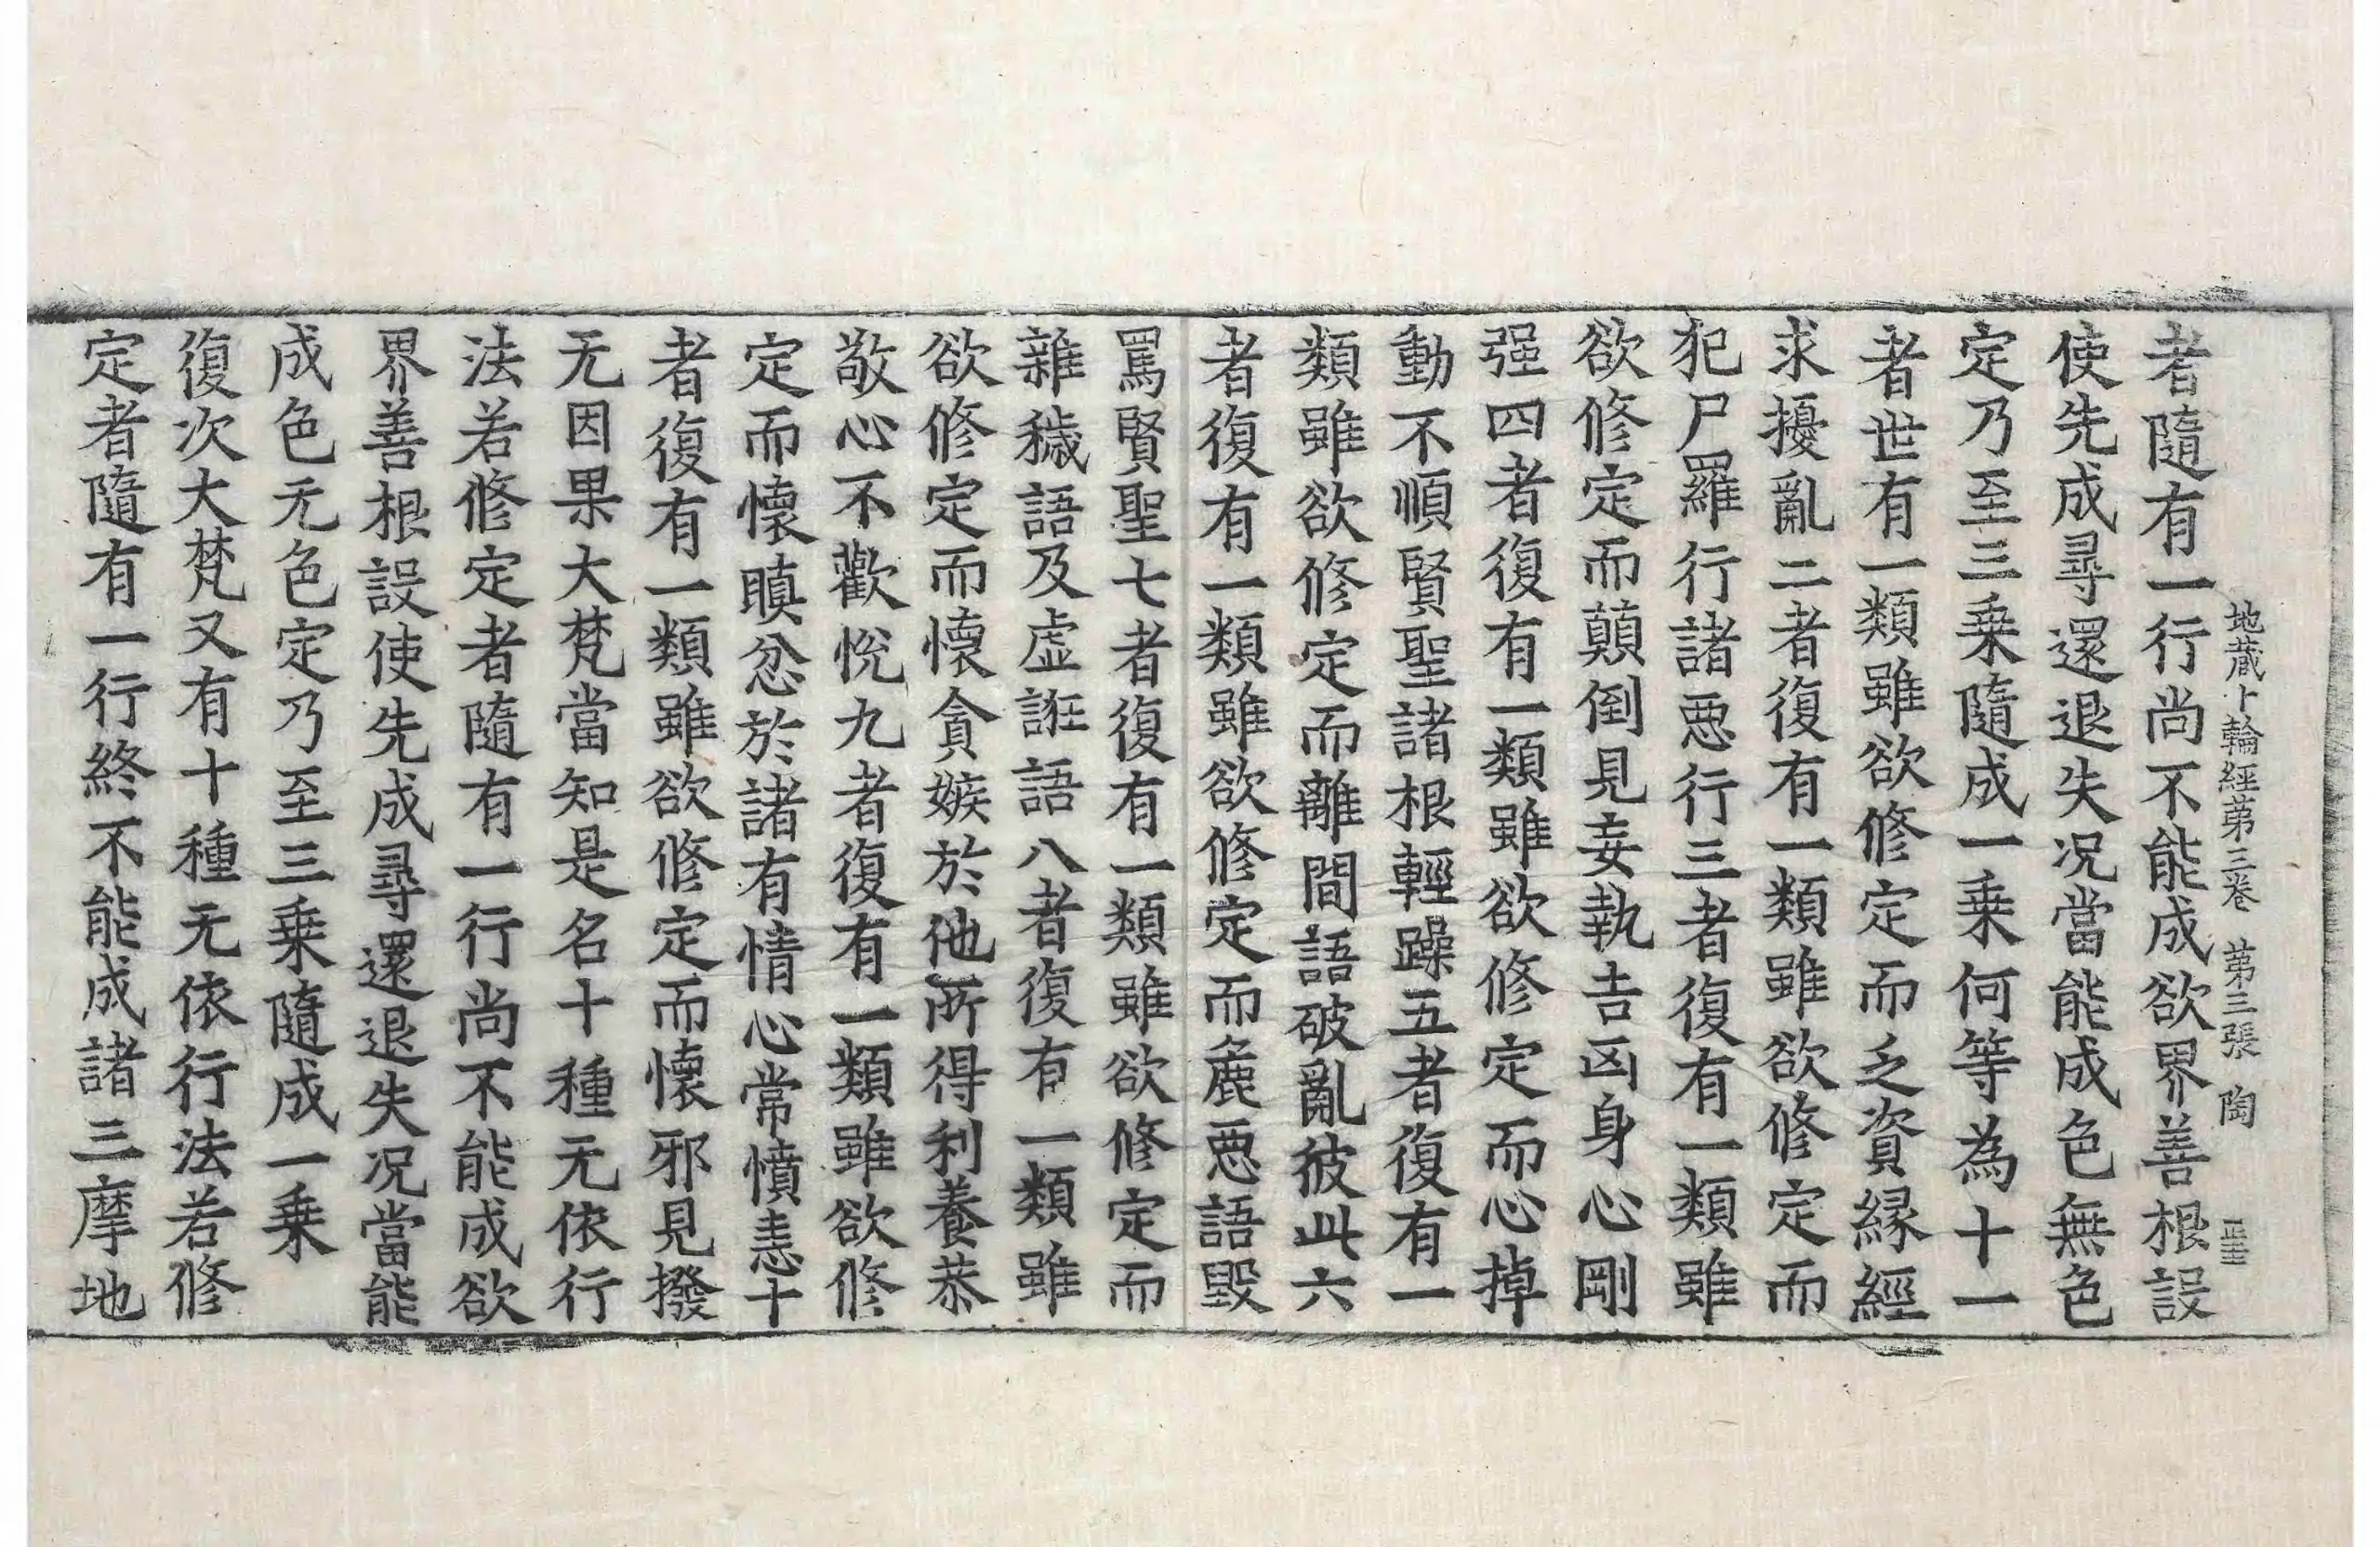 地藏十輪經第三卷 第三張 陶
者隨有一行尚不能成欲界善根設
使先成尋還退失况當能成色無色
定乃至三乗隨成一乗何等為十一
者世有一類雖欲修定而乏資縁經
求擾亂二者復有一類雖欲修定而
犯尸羅行諸惡行三者復有一類雖
欲修定而顛倒見妄執吉凶身心剛
强四者復有一類雖欲修定而心掉
動不順賢聖諸根輕躁五者復有一
類雖欲修定而離間語破亂彼此六
者復有一類雖欲修定而麁惡語毀
罵賢聖七者復有一類雖欲修定而
雜穢語及虛誑語八者復有一類雖
欲修定而懷貪嫉於他所得利養恭
敬心不歡悅九者復有一類雖欲修
定而懷瞋忿於諸有情心常憤恚十
者復有一類雖欲修定而懷邪見撥
无因果大梵當知是名十種无依行
法若修定者隨有一行尚不能成欲
界善根設使先成尋還退失况當能
成色无色定乃至三乗隨成一乗
復次大梵又有十種无依行法若修
定者隨有一行終不能成諸三摩地